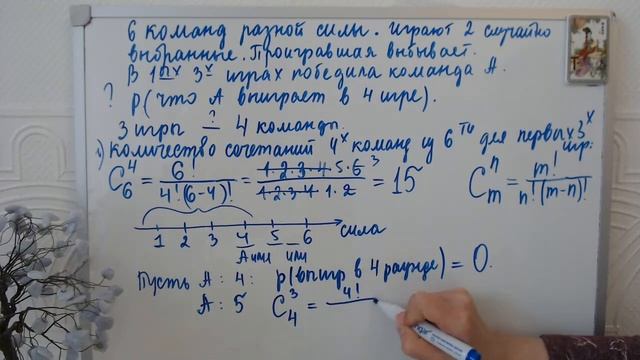 6 команд разной силы. играют 2 случайно
выбранные. Проигравшая выбывает.
В 1ых 3х играх победила команда А.
? р(что А выиграет в 4 игре).
3 игры ?— 4 команды.
1) количество сочетаний 4х команд из 6ти для первых 3х игр:
C₆⁴ = 6! / 4!(6-4)! = 1·2·3·4·5·6 3 / 1·2·3·4 1·2 = 15
Cₘⁿ = m! / n!(m-n)!
1 2 3 4 5 6 сила
А или или
Пусть А: 4: р(выигр в 4 раунде) = 0.
А: 5 C₄³ = 4!